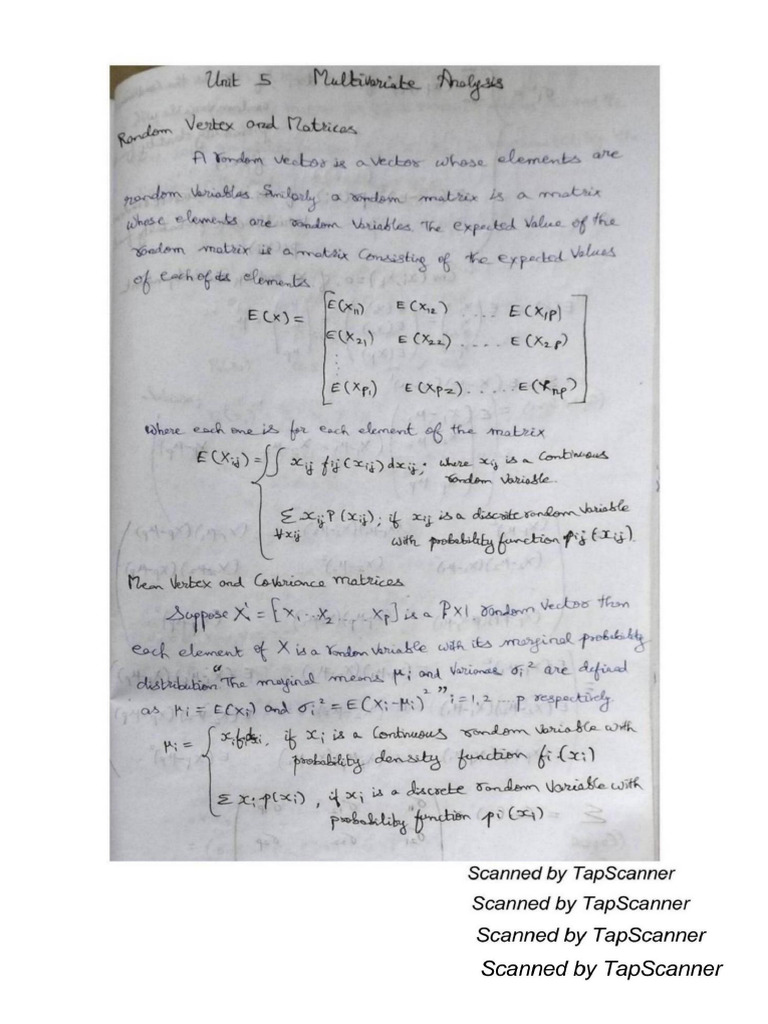 Unit 5 Multivariate Analysis
Random Vertex and Matrices
A random vector is a vector whose elements are
random variables. Similarly a random matrix is a matrix
whose elements are random variables. The expected value of the
random matrix is a matrix consisting of the expected values
of each of its elements
E(X) = [E(X11) E(X12) .... E(X1P)
E(X21) E(X22) ..... E(X2P)
⋮
E(XP1) E(XP2) ...... E(Xnp)]
where each one is for each element of the matrix
E(Xij) = { ∫∫ xij fij(xij) dxij. where xij is a continuous
random variable.
Σ xij P(xij); if xij is a discrete random variable
∀xij with probability function pij(xij).
Mean Vertex and Covariance matrices
Suppose X' = [X1 .. X2 ... XP] is a P×1 random vector then
each element of X is a random variable with its marginal probability
distribution "The marginal means μi and variance σi² are defined
as μi = E(Xi) and σi² = E(Xi-μi)²" i=1,2 ... p respectively
μi = { xi fi dxi, if xi is a continuous random variable with
probability density function fi(xi)
Σ xi p(xi), if xi is a discrete random variable with
probability function pi(xi)
Scanned by TapScanner
Scanned by TapScanner
Scanned by TapScanner
Scanned by TapScanner